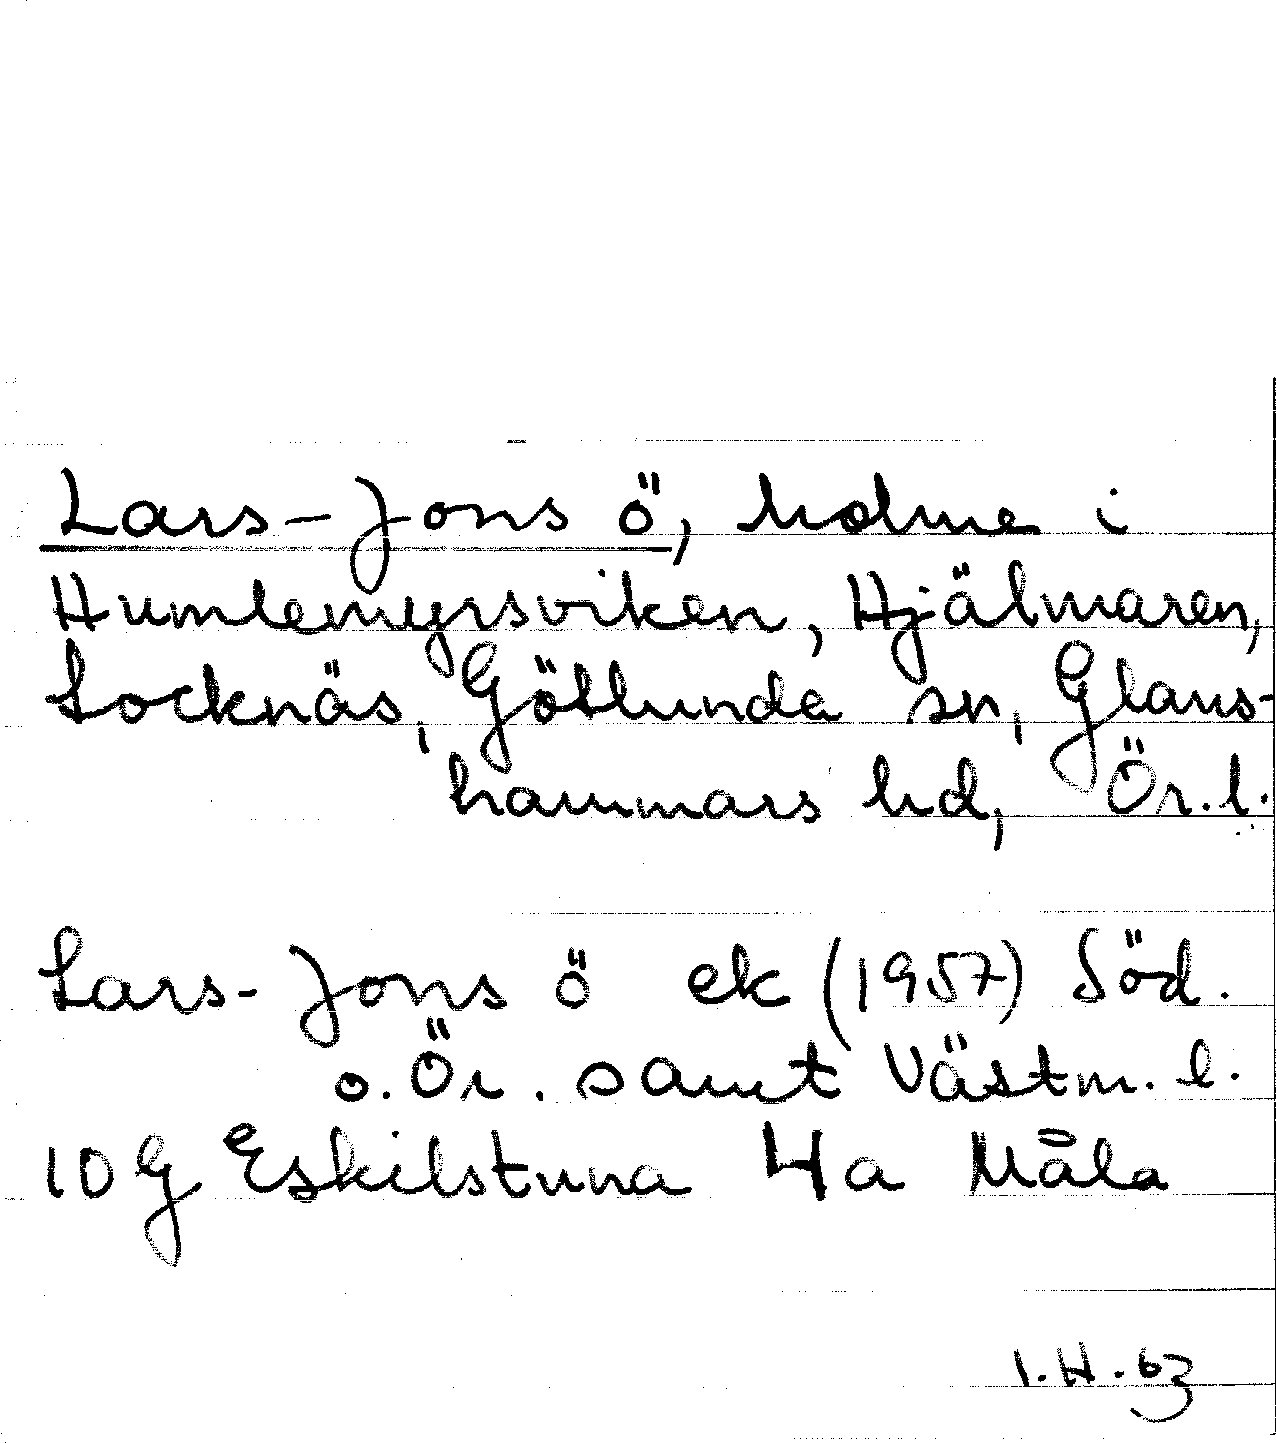 Lars-Jons ö, holme i
Humlemyrsviken, Hjälmaren,
Locknäs, Götlunda sn, Glans-
hammars hd, Ör.l.
Lars-Jons ö ek (1957) Söd.
o. Ör. samt Västm. l.
10 G Eskilstuna 4a Måla
I.H. 63